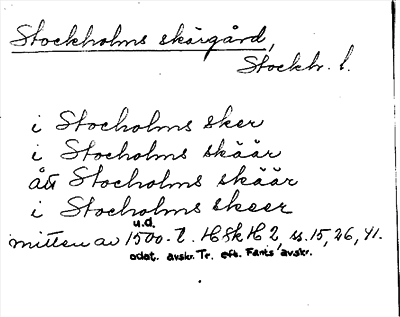 Stockholms skärgård,
Stockh. l.
i Stocholms sker
i Stocholms skäär
ått Stocholms skäär
i Stocholms skeer
u.d.
mitten av 1500-t. HSk H 2, ss. 15, 26, 41.
odat. avskr. Tr. eft. Fants avskr.